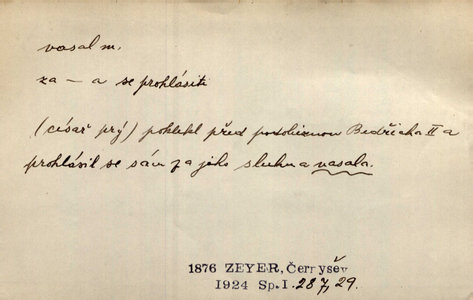 vasal m.
za – a se prohlásiti
(císař prý) poklekl před podobiznou Bedřicha II a
prohlásil se sám za jeho sluhu a vasala.
1876 ZEYER, Černyšev
1924 Sp. I. 28 7, 29.